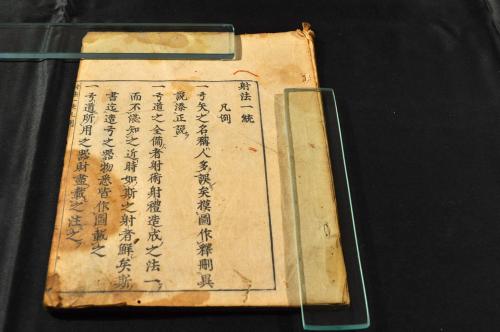 射法一統
凡例
一弓矢之名稱人多誤矣摸圖作釋刪異
説湊正説
一弓道之全備者射術射禮造成之法一
而不候知之近時如斯之射者鮮矣斯
書迄造弓之器物悉皆作圖載之
一弓道所用之器財盡載之注之